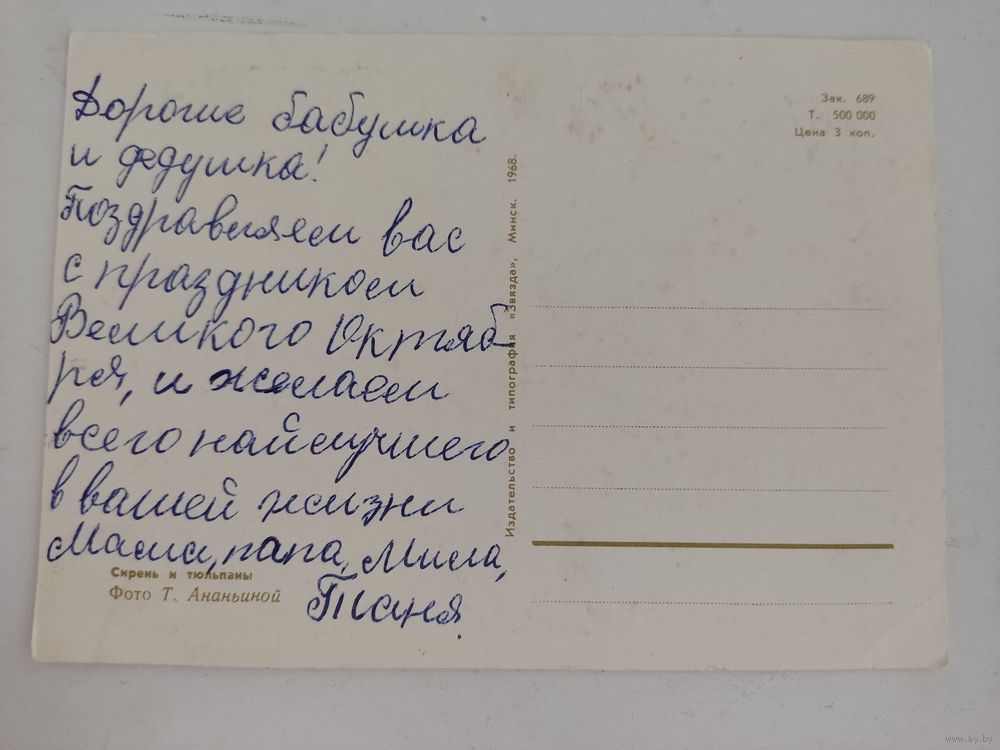 Дорогие бабушка
и дедушка!
Поздравляем вас
с праздником
Великого Октяб-
ря, и желаем
всего найлучшего
в вашей жизни
Мама, папа, Мила,
Таня.
Сирень и тюльпаны
Фото Т. Ананьиной
Издательство и типография «Звязда», Минск. 1968.
Зак. 689
Т. 500 000
Цена 3 коп.
www.ay.by